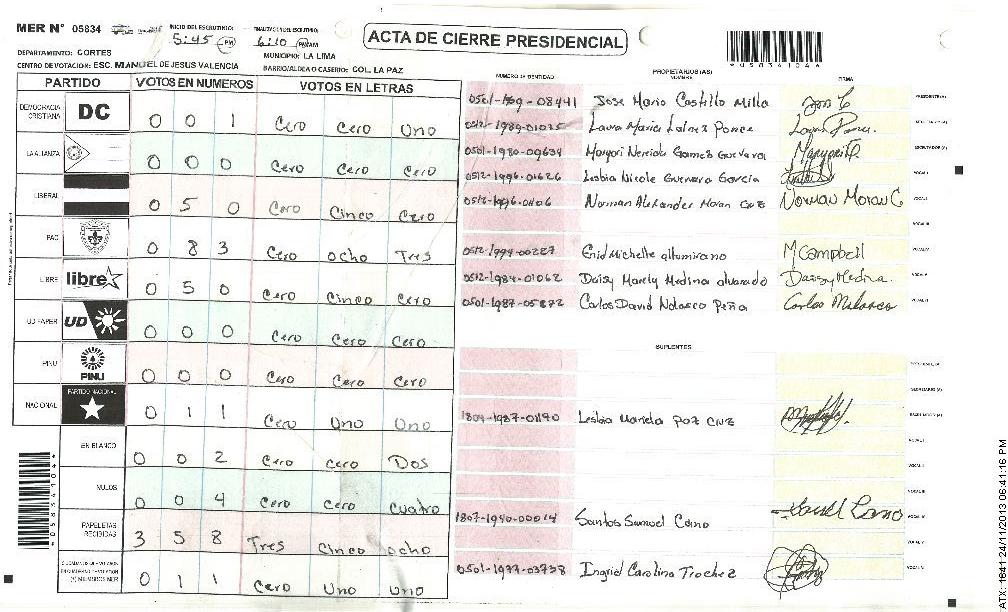 MER Nº 05834
INICIO DEL ESCRUTINIO:
5:45 PM
FINALIZACION DEL ESCRUTINIO:
6:10 PM/AM
ACTA DE CIERRE PRESIDENCIAL
*05834104*
DEPARTAMENTO: CORTES
MUNICIPIO: LA LIMA
CENTRO DE VOTACION: ESC. MANUEL DE JESUS VALENCIA
BARRIO/ALDEA O CASERIO: COL. LA PAZ
PARTIDO VOTOS EN NUMEROS VOTOS EN LETRAS
DEMOCRACIA CRISTIANA DC 0 0 1 Cero Cero Uno
LA ALIANZA 0 0 0 Cero Cero Cero
LIBERAL 0 5 0 Cero Cinco Cero
PAC 0 8 3 Cero ocho Tres
LIBRE libre 0 5 0 Cero Cinco Cero
UD FAPER UD 0 0 0 Cero Cero Cero
PINU PINU 0 0 0 Cero Cero Cero
NACIONAL PARTIDO NACIONAL 0 1 1 Cero Uno Uno
EN BLANCO 0 0 2 Cero Cero Dos
NULOS 0 0 4 Cero Cero Cuatro
PAPELETAS RECIBIDAS 3 5 8 Tres Cinco ocho
(+) MIEMBROS MER 0 1 1 Cero Uno Uno
PROPIETARIOS (AS)
NUMERO DE IDENTIDAD NOMBRE FIRMA
08441 Jose Mario Castillo Milla PRESIDENTE (A)
0512-1989-01035 Laura Maria Ponce SECRETARIO (A)
0501-1980-09634 Margori Nereida Gomes Guevara ESCRUTADOR (A)
0512-1996-01626 Lesbia Nicole Guevara Garcia VOCAL I
0512-1996-01106 Norman Alexander Moran Cruz Norman Moran C VOCAL II
VOCAL III
0512-1994-00287 Enid Michelle altumirano M Campbell VOCAL IV
0512-1984-01062 Daisy Marely Medina alvarado Daisy Medina VOCAL V
0501-1987-05872 Carlos David Nolasco Peña Carlos Nolasco VOCAL VI
SUPLENTES
PRESIDENTE (A)
SECRETARIO (A)
1804-1987-01190 Lesbia Mariela Paz Cruz ESCRUTADOR (A)
VOCAL I
VOCAL II
VOCAL III
1807-1990-00014 Santos Samuel Cano VOCAL IV
VOCAL V
0501-1977-03738 Ingrid Carolina Trochez VOCAL VI
*05834104*
ATX: 1641 24/11/2013 06:41:16 PM